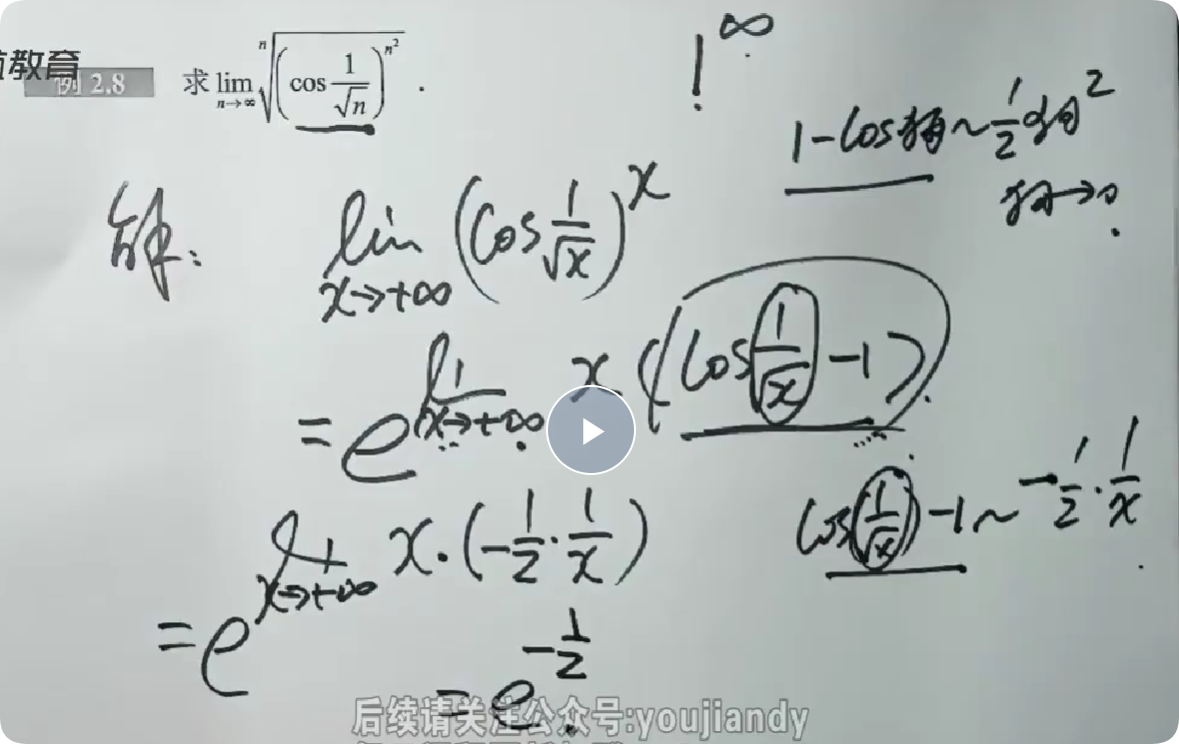 教育
例 2.8 求 lim n→∞ ⁿ√((cos 1/√n)^(n²)) .
1^∞
1-cos狗~1/2 狗²
狗→0.
解: lim x→+∞ (cos 1/√x)^x
= e^(lim x→+∞ x(cos 1/√x -1)).
cos(1/√x)-1~-1/2·1/x.
= e^(lim x→+∞ x·(-1/2·1/x))
= e^(-1/2).
后续请关注公众号:youjiandy